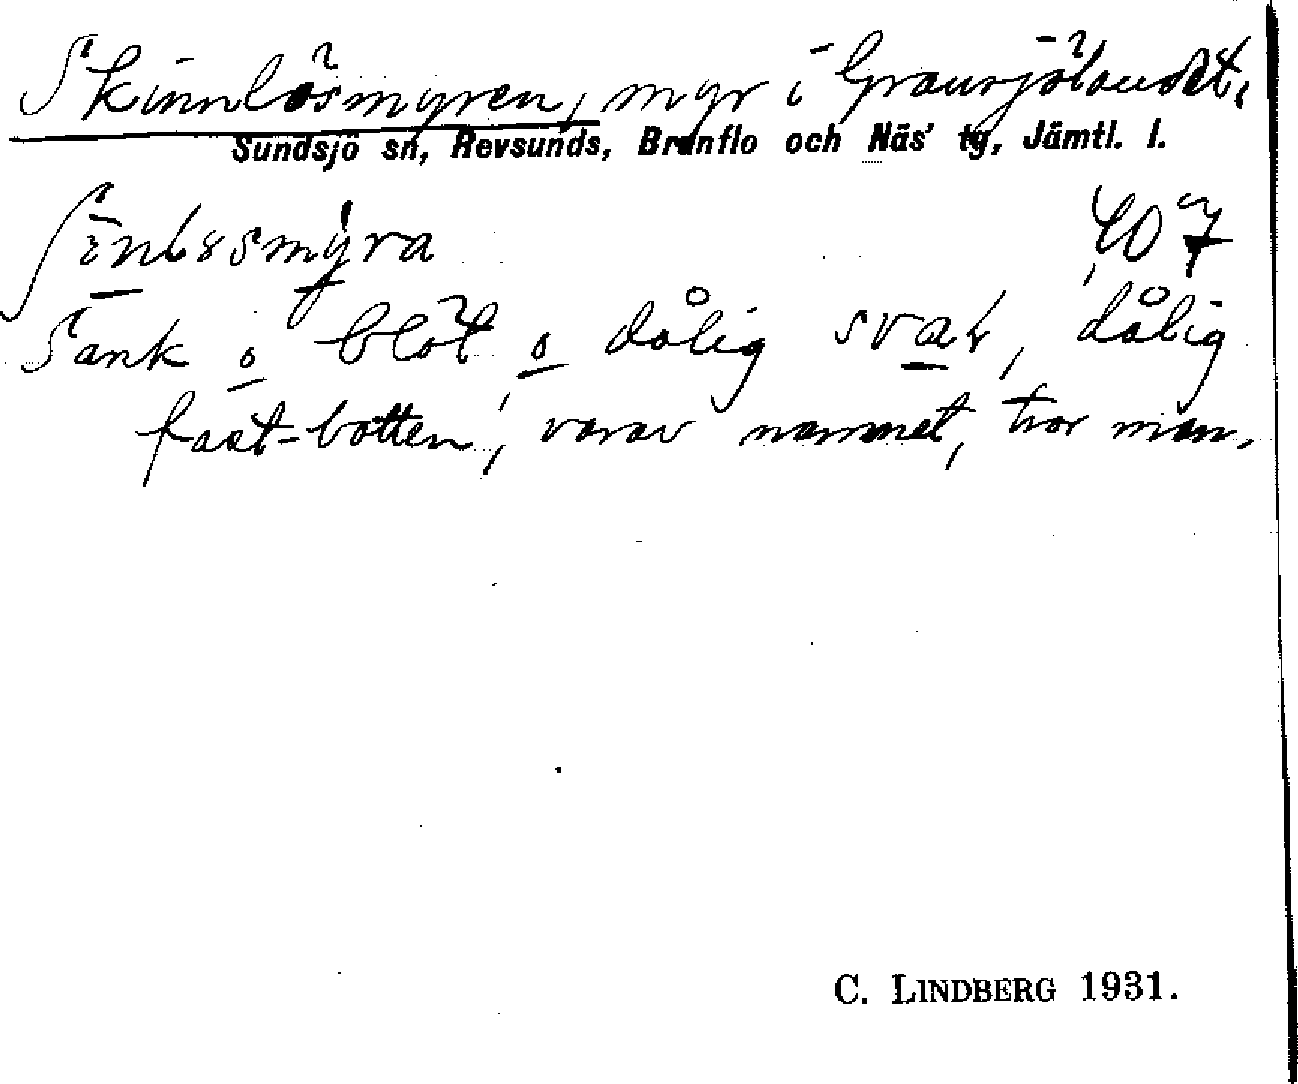 Skinnlösmyren, myr i Gransjölandet,
Sundsjö sn, Revsunds, Brunflo och Näs' tg, Jämtl. l.
407
Sank o blöt o dålig svak, dålig
fast-botten, varav namnet, tror man.
C. LINDBERG 1931.